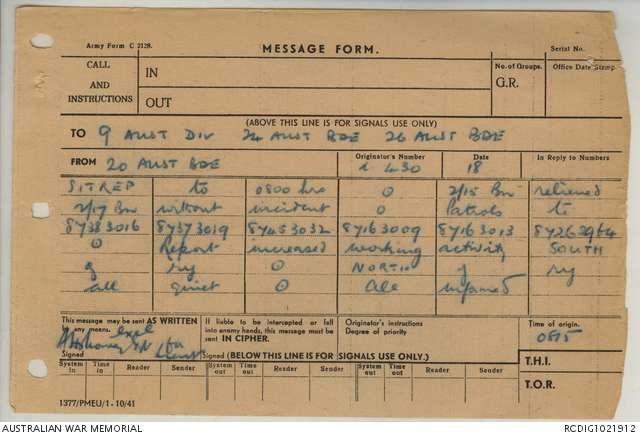 Army Form C 2128.
MESSAGE FORM.
Serial No.
CALL AND INSTRUCTIONS
IN
OUT
No. of Groups.
G.R.
Office Date Stamp
(ABOVE THIS LINE IS FOR SIGNALS USE ONLY)
TO 9 AUST DIV 24 AUST BDE 26 AUST BDE
FROM 20 AUST BDE
Originator's Number
430
Date
18
In Reply to Numbers
SITREP to 0800 hrs O 2/15 Bn relieved
2/17 Bn without incident O Patrols to
87383016 87373019 87453032 87163009 87163013 87263964
O Report increased working activity SOUTH
of rly O NORTH of rly
all quiet O All informed
This message may be sent AS WRITTEN by any means.
Signed
If liable to be intercepted or fall into enemy hands, this message must be sent IN CIPHER.
Signed
Originator's instructions
Degree of priority
Time of origin
0815
(BELOW THIS LINE IS FOR SIGNALS USE ONLY.)
T.H.I.
System in
Time in
Reader
Sender
System out
Time out
Reader
Sender
System out
Time out
Reader
Sender
T.O.R.
1377/PMEU/1-10/41
AUSTRALIAN WAR MEMORIAL
RCDIG1021912